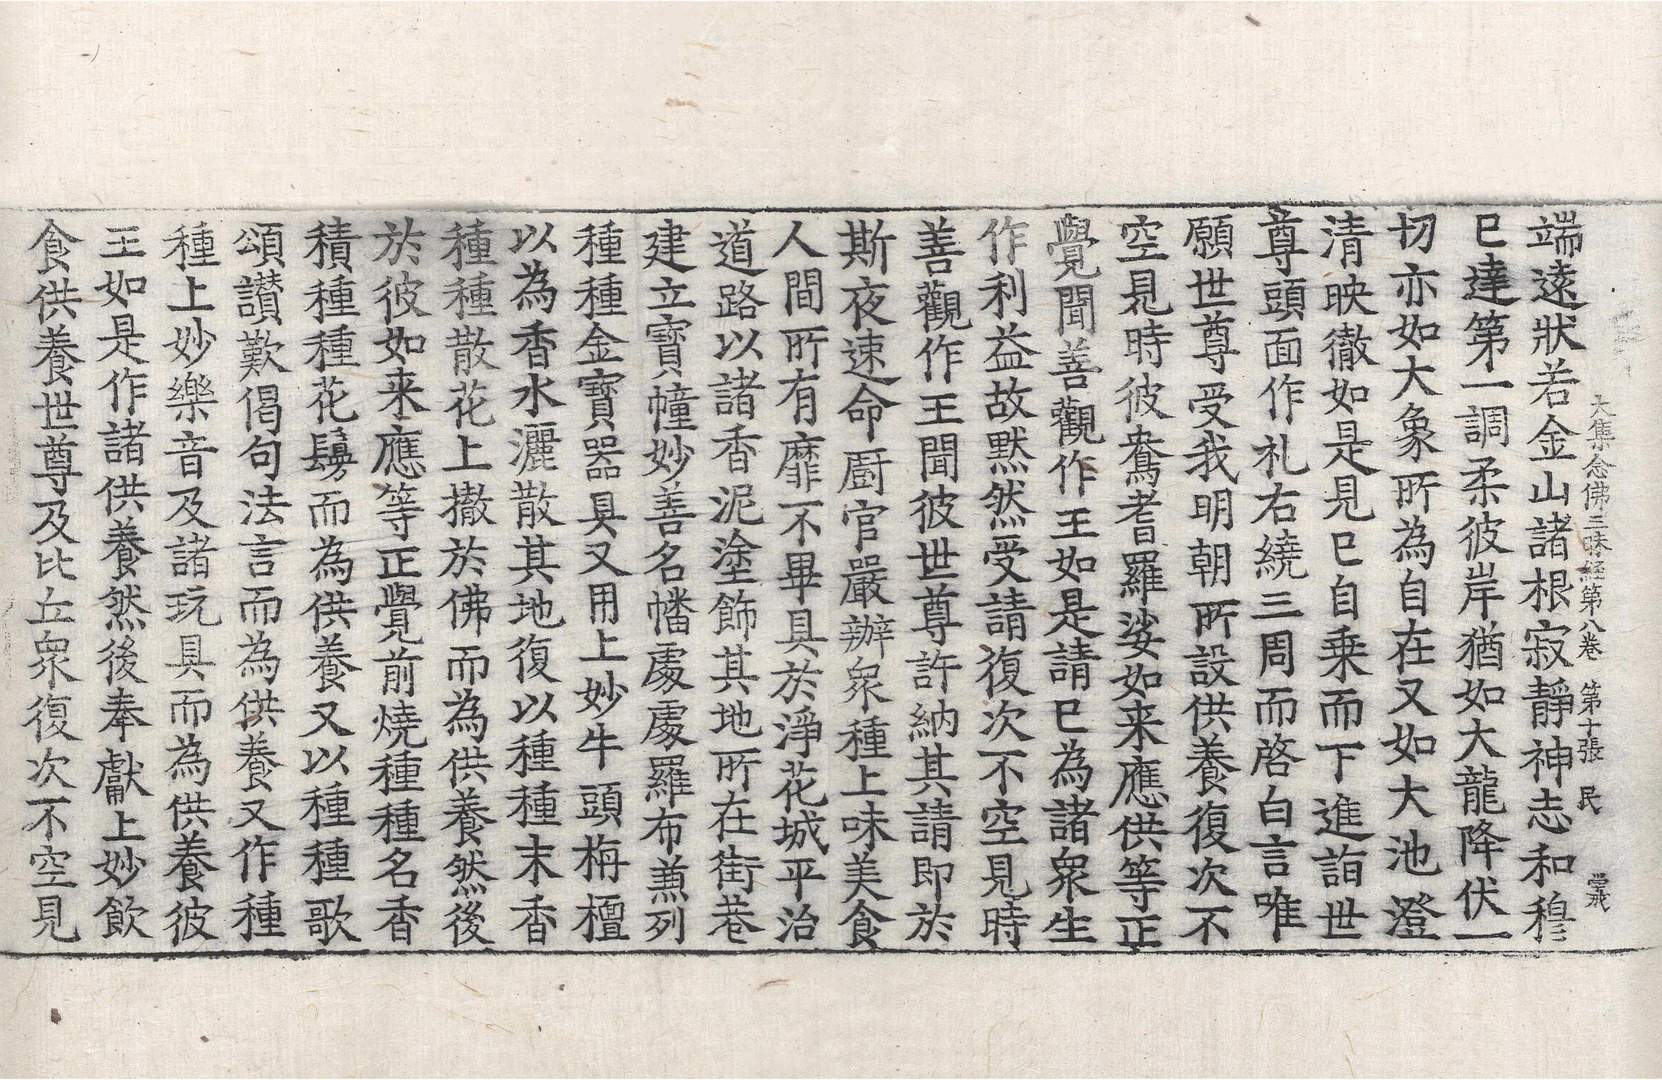 大集念佛三昧経第八卷 第十張 民
端遠狀若金山諸根寂靜神志和穆
已達第一調柔彼岸猶如大龍降伏一
切亦如大象所為自在又如大池澄
清映徹如是見已自乗而下進詣世
尊頭面作礼右繞三周而啓白言唯
願世尊受我明朝所設供養復次不
空見時彼鴦耆羅娑如来應供等正
覺聞善觀作王如是請已為諸衆生
作利益故默然受請復次不空見時
善觀作王聞彼世尊許納其請即於
斯夜速命厨官嚴辦衆種上味美食
人間所有靡不畢具於淨花城平治
道路以諸香泥塗飾其地所在街巷
建立寶幢妙善名幡處處羅布兼列
種種金寶器具又用上妙牛頭栴檀
以為香水灑散其地復以種種末香
種種散花上撒於佛而為供養然後
於彼如来應等正覺前燒種種名香
積種種花鬘而為供養又以種種歌
頌讃歎偈句法言而為供養又作種
種上妙樂音及諸玩具而為供養彼
王如是作諸供養然後奉獻上妙飲
食供養世尊及比丘衆復次不空見